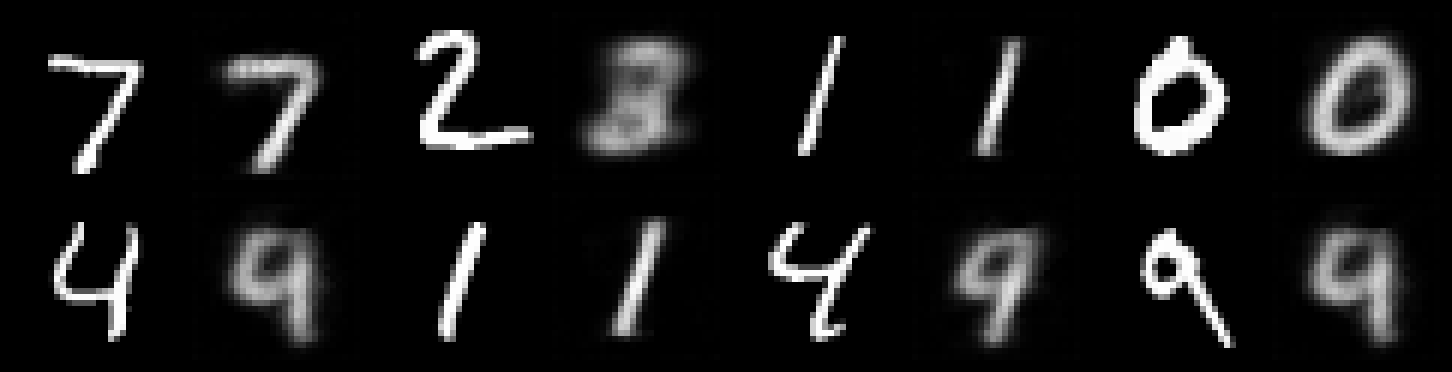 7 7 2 3 1 1 0 0
4 9 1 1 4 9 9 9